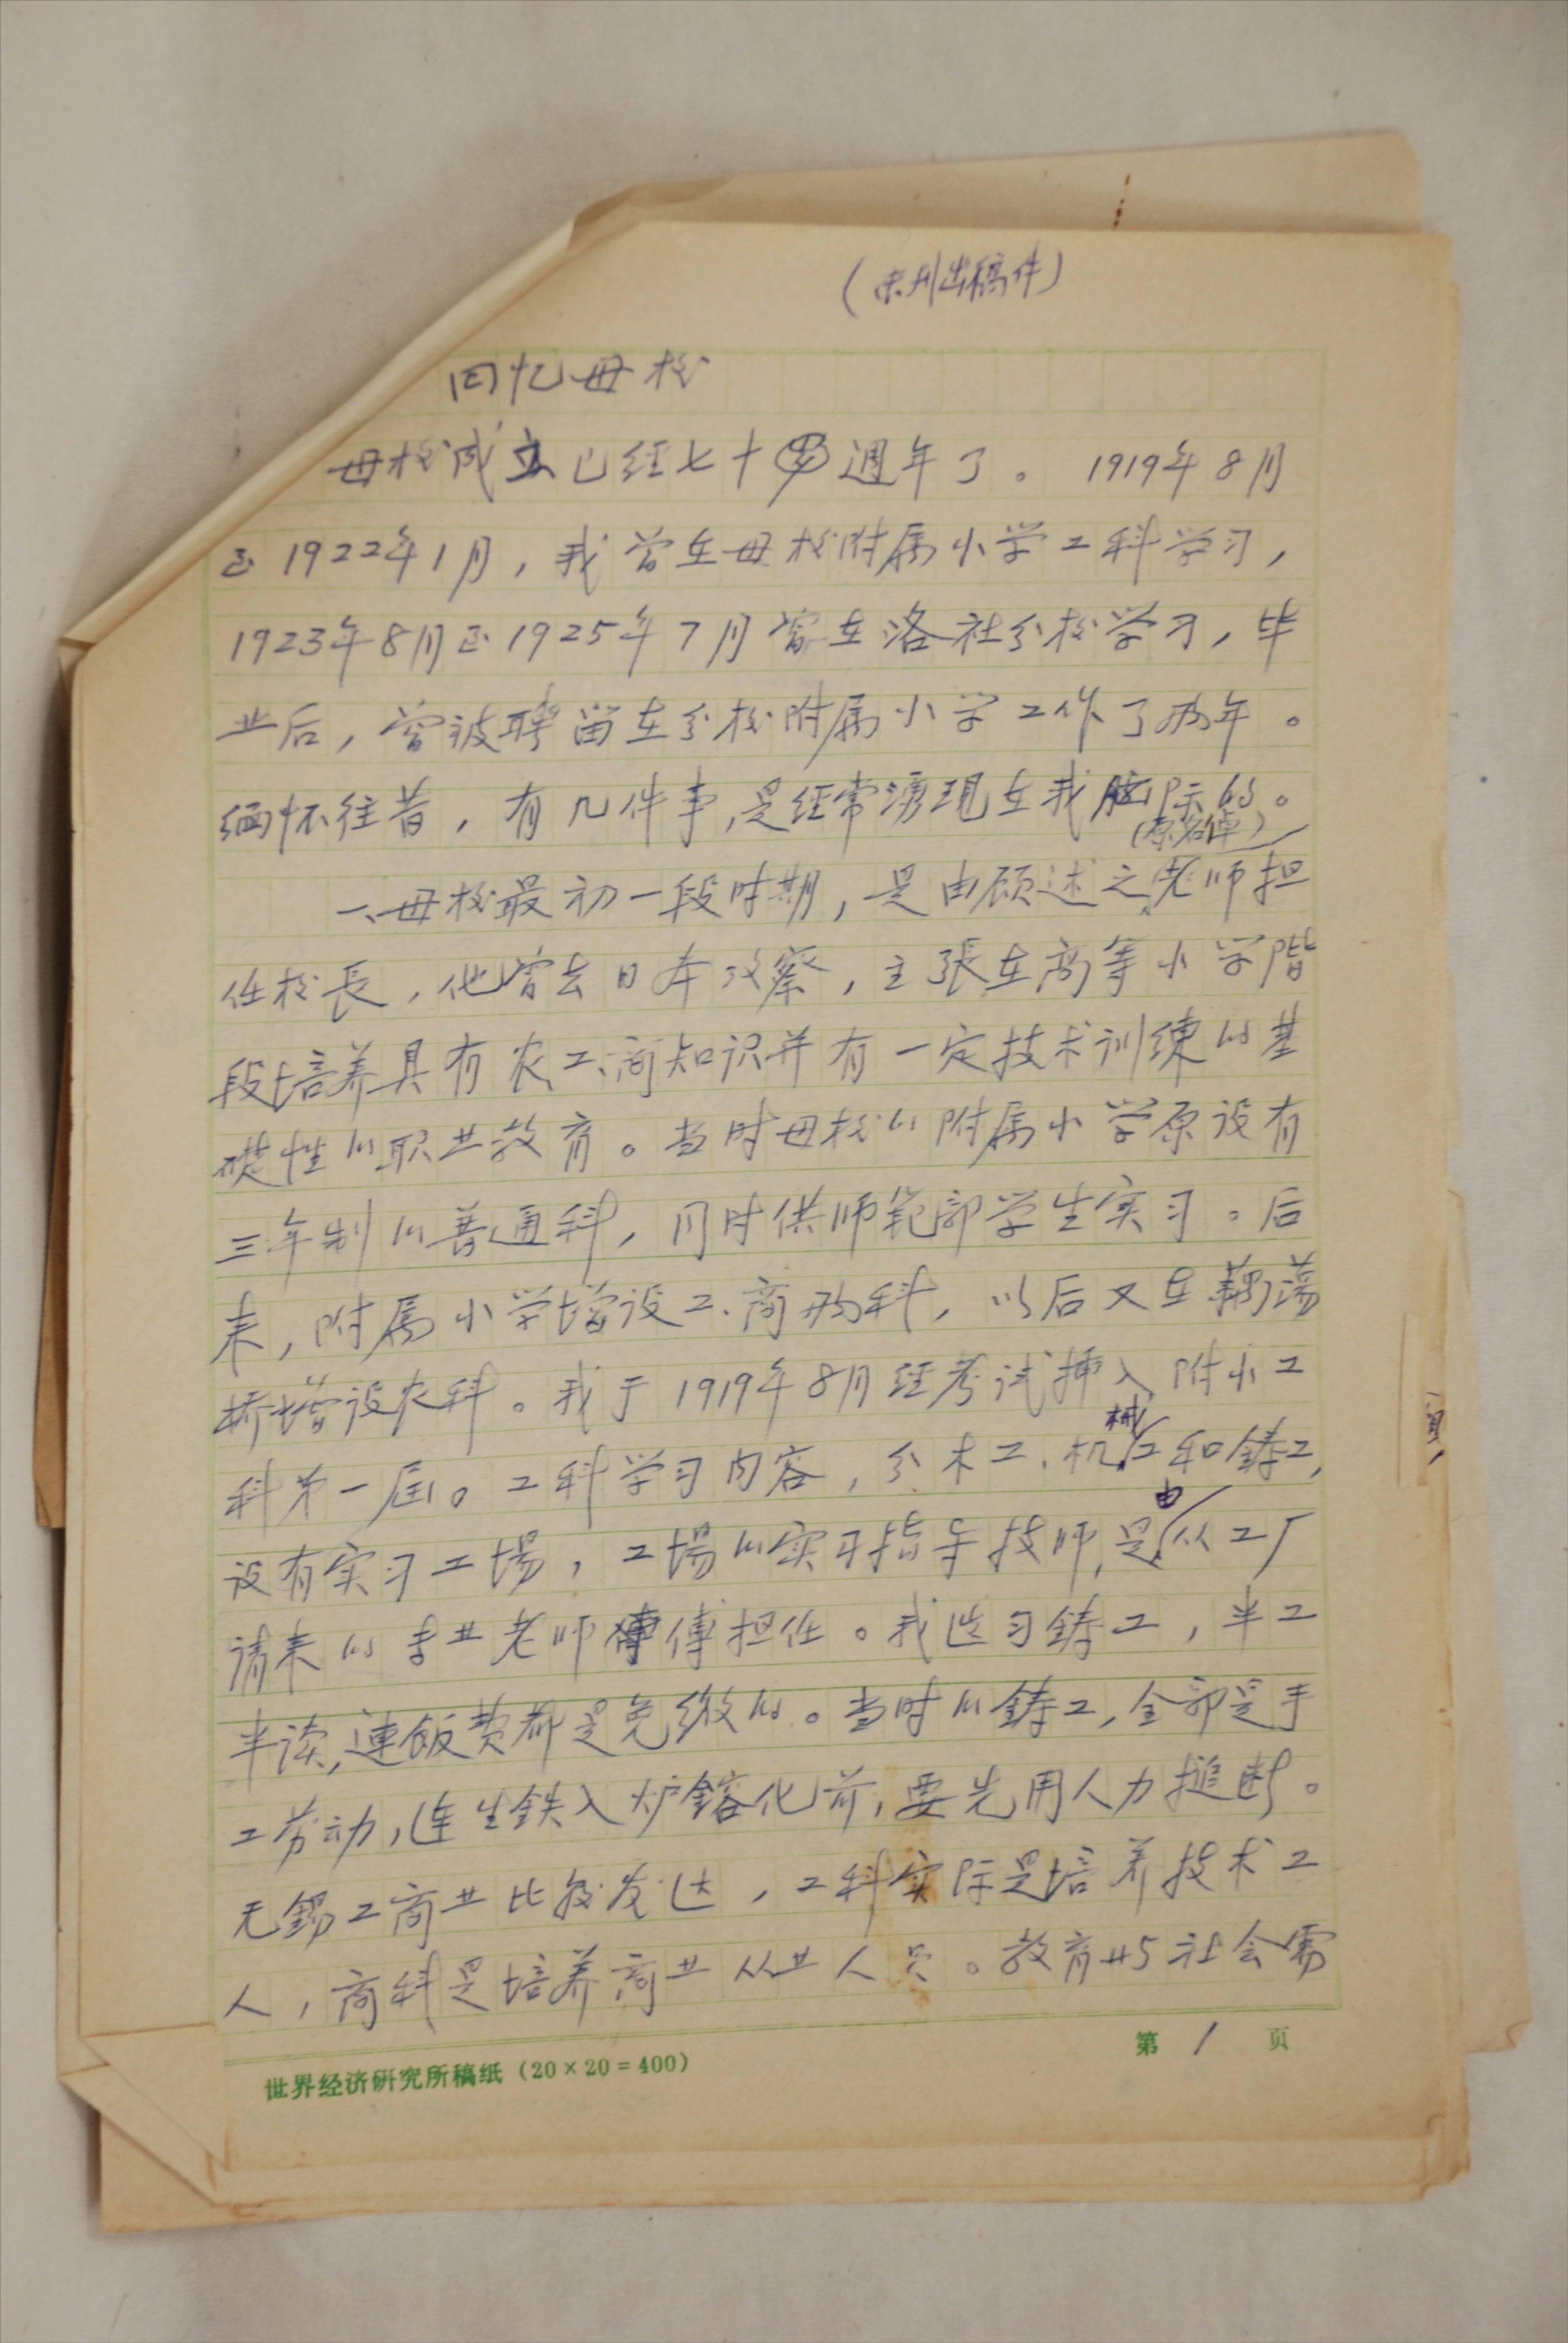 (未刊出稿件)
回忆母校
母校成立已经七十四週年了。1919年8月
至1922年1月，我曾在母校附属小学工科学习，
1923年8月至1925年7月曾在洛社分校学习，毕
业后，曾被聘留在分校附属小学工作了两年。
缅怀往昔，有几件事,是经常湧现在我脑际的。
(原名倬)
一、母校最初一段时期，是由顾述之老师担
任校長，他曾去日本攷察，主張在高等小学階
段培养具有农、工、商知识并有一定技术训練的基
礎性的职业教育。当时母校的附属小学原设有
三年制的普通科，同时供师範部学生实习。后
来，附属小学增设工、商两科，以后又在藕蕩
桥增设农科。我于1919年8月经考试插入附小工
械
科第一届。工科学习内容，分木工、机工和鋳工，
由
设有实习工場，工場的实习指导技师,是从工厂
请来的专业老师傅担任。我选习鋳工，半工
半读,連飯费都是免缴的。当时的鋳工,全部是手
工劳动,连生鉄入炉鎔化前,要先用人力搥断。
无錫工商业比较发达，工科实际是培养技术工
人，商科是培养商业从业人员。教育与社会需
第1页
世界经济研究所稿纸（20×20=400）